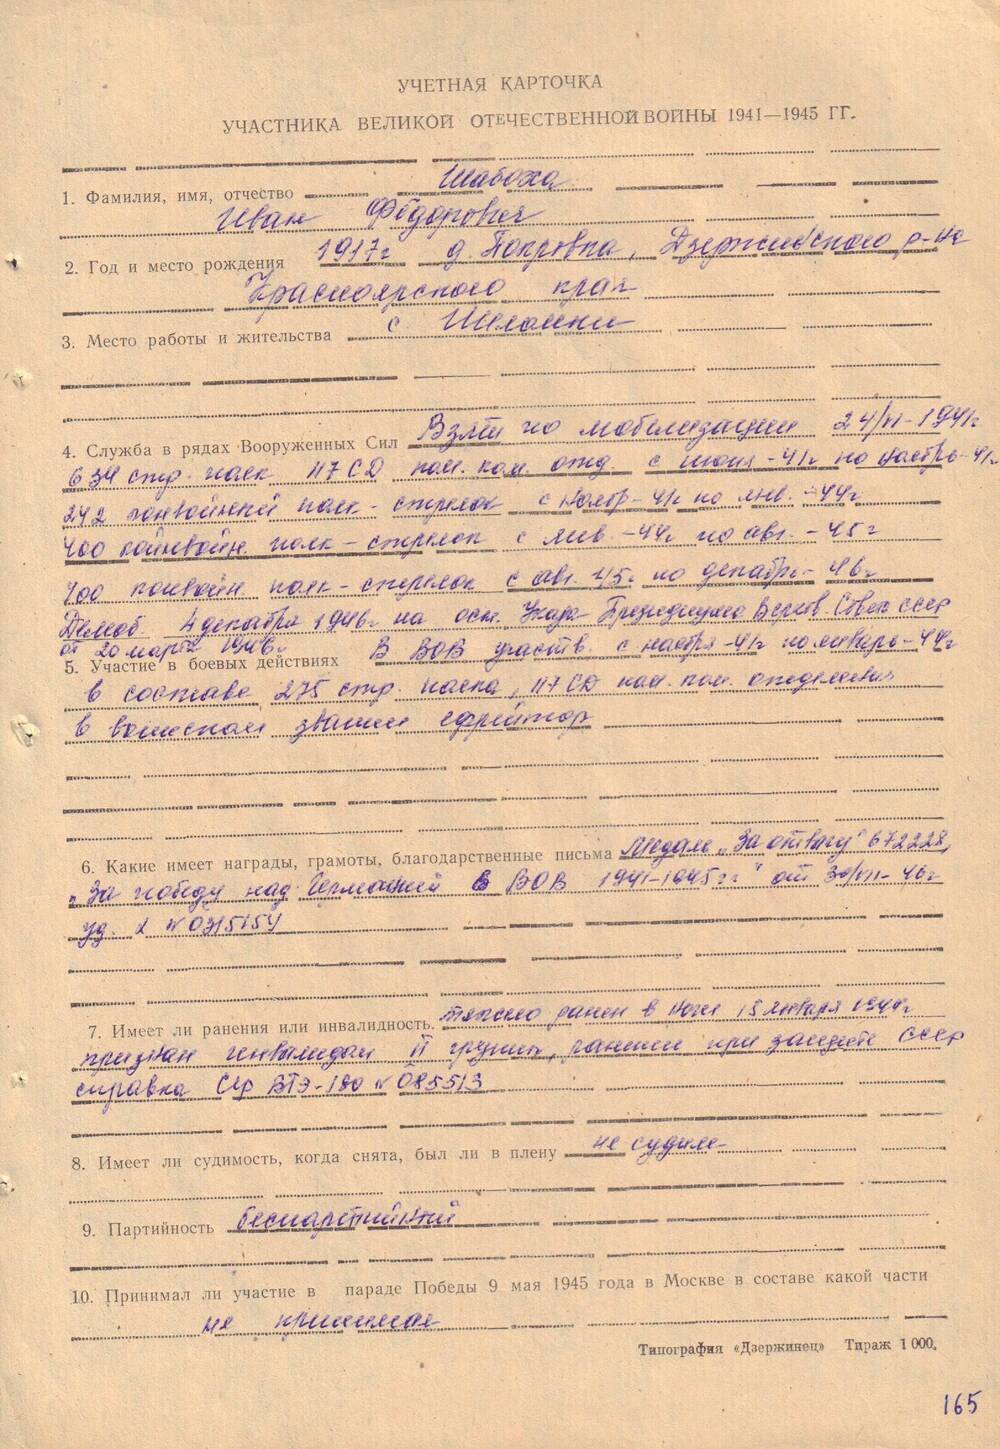 УЧЕТНАЯ КАРТОЧКА
УЧАСТНИКА ВЕЛИКОЙ ОТЕЧЕСТВЕННОЙ ВОЙНЫ 1941—1945 ГГ.
1. Фамилия, имя, отчество Шабоха
Иван Фёдорович
2. Год и место рождения 1917г д. Покровка, Дзержинского р-на
Красноярского края
3. Место работы и жительства с Шеломки
4. Служба в рядах Вооруженных Сил Взят по мобилизации 24/VI-1941г
634 стр. полк 117 СД пом. ком. отд. с июня-41г по ноябрь-41г
242 конвойный полк - стрелок с нояб-41г по янв.-44г
400 конвойн. полк - стрелок с янв.-44г по авг.-45г
400 конвойн полк - стрелок с авг. 45г по декабрь-46г
Демоб. 4 декабря 1946г на осн. Указа Президиума Верхов. Совета СССР
от 20 марта 1946г
5. Участие в боевых действиях В ВОВ участв. с ноября-41г по январь-44г
в составе 275 стр. полка, 117 СД пом. отделения
в воинском звании ефрейтор
6. Какие имеет награды, грамоты, благодарственные письма Медаль „За отвагу" 672228,
„За победу над Германией в ВОВ 1941-1945гг" от 30/VII-46г
уд. № 0315154
7. Имеет ли ранения или инвалидность. тяжело ранен в ноги 15 января 1944г
признан инвалидом II группы, ранение при защите СССР
справка Сер ВТЭ-180 № 085513
8. Имеет ли судимость, когда снята, был ли в плену не судим
9. Партийность беспартийный
10. Принимал ли участие в параде Победы 9 мая 1945 года в Москве в составе какой части
не принимал
Типография «Дзержинец» Тираж 1 000.
165